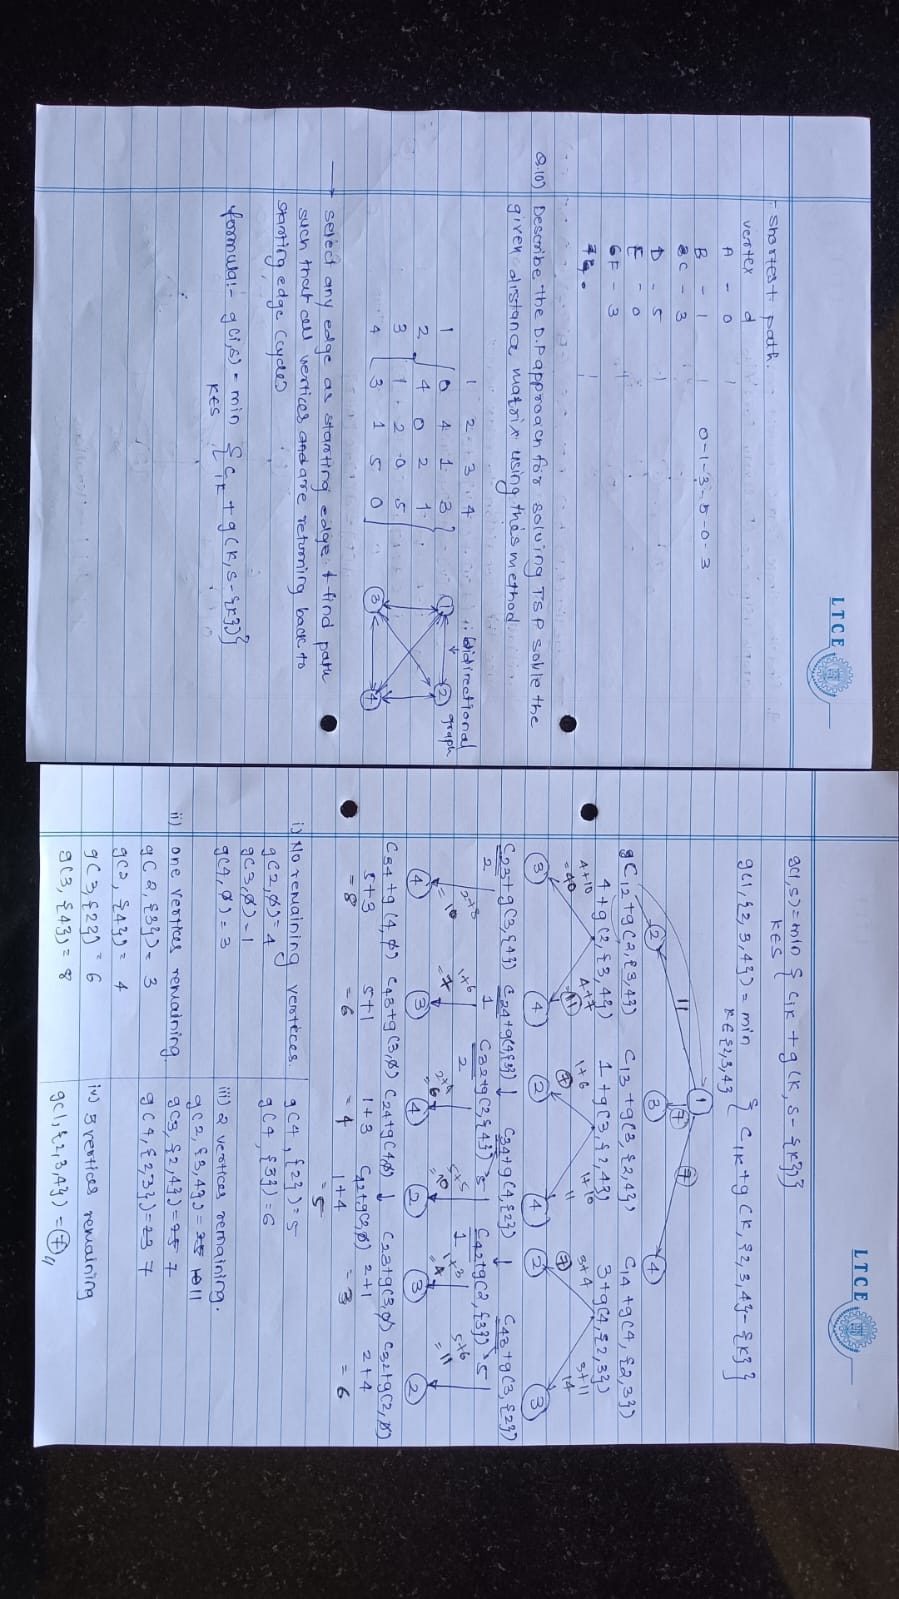 LTCE
- Shortest path.
vertex d
A - 0
B - 1 0-1-3-5-0-3
C - 3
D - 5
E - 0
F - 3
Q.10) Describe the D.P approach for solving TSP solve the
given distance matrix using this method.
1 2 3 4
1 0 4 1 3
2 4 0 2 1
3 1 2 0 5
4 3 1 5 0
∴ bidirectional
graph
1 2
3 4
→ select any edge as starting edge & find path
such that all vertices and are returning back to
starting edge (cycle)
formula:- g(i,s) = min { Cik + g(k, s-{k})}
k∈s
LTCE
g(1,s) = min { C1k + g(k, s-{k})}
k∈s
g(1,{2,3,4}) = min { C1k + g(k, {2,3,4}-{k}}
k∈{2,3,4}
1
11 7 7
2 3 4
C12+g(2,{3,4}) C13+g(3,{2,4}) C14+g(4,{2,3})
4+g(2,{3,4}) 1+g(3,{2,4}) 3+g(4,{2,3})
4+10 4+7 1+6 1+10 3+4 3+11
=40 =11 7 11 7 14
3 4 2 4 2 3
C23+g(3,{4}) C24+g(4,{3}) ↓ C34+g(4,{2}) ↓ C43+g(3,{2})
2 1 C32+g(2,{4}) 5 C42+g(2,{3}) 5
2 1
2+8 1+6 2+4 5+5 1+3 5+6
=10 =7 =6 =10 =4 =11
4 3 4 2 3 2
C34+g(4,∅) C43+g(3,∅) C24+g(4,∅) ↓ C23+g(3,∅) C32+g(2,∅)
5+3 5+1 1+3 C42+g(2,∅) 2+1 2+4
=8 =6 =4 1+4 =3 =6
=5
i) No remaining vertices.
g(2,∅)=4
g(3,∅)=1
g(4,∅)=3
ii) one vertices remaining.
g(2,{3})= 3
g(2,{4})= 4
g(3,{2})= 6
g(3,{4})= 8
g(4,{2})=5
g(4,{3})=6
iii) 2 vertices remaining.
g(2,{3,4})= 11
g(3,{2,4})= 7
g(4,{2,3})= 7
iv) 3 vertices remaining
g(1,{2,3,4}) = 7